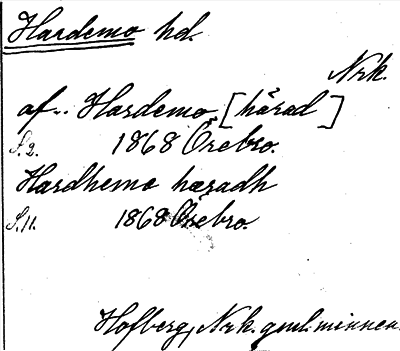 Hardemo hd.
Nrk.
af.. Hardemo [härad]
S.2. 1868 Örebro.
Hardhemo hæradh
S.11. 1868 Örebro.
Hofberg, Nrk. gml. minnen